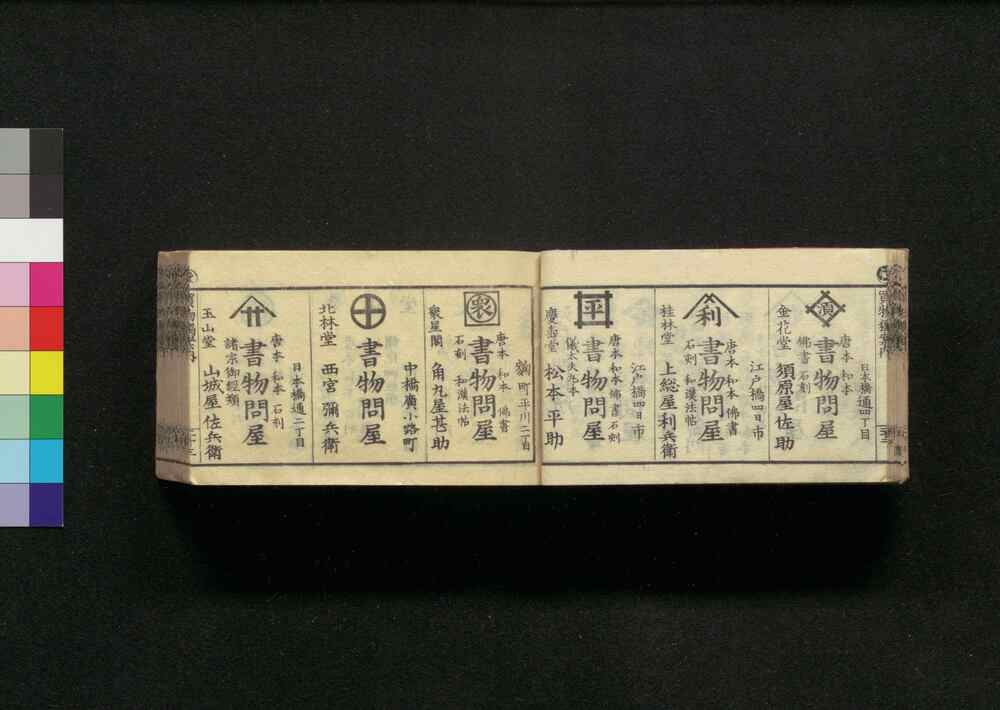 日本橋通四丁目
須
書物問屋
唐本 和本
佛書 石刻
金花堂 須原屋佐助
江戸橋四日市
利
書物問屋
唐本 和本 佛書
石刻 和漢法帖
桂林堂 上総屋利兵衛
江戸橋四日市
平
書物問屋
唐本 和本 佛書 石刻
儀太夫丸本
慶壽堂 松本平助
麹町平川二丁目
衆
書物問屋
唐本 和本 佛書
石刻 和漢法帖
衆星閣 角丸屋甚助
中橋廣小路町
書物問屋
北林堂 西宮彌兵衛
日本橋通二丁目
書物問屋
唐本 和本 石刻
諸宗御経類
玉山堂 山城屋佐兵衛